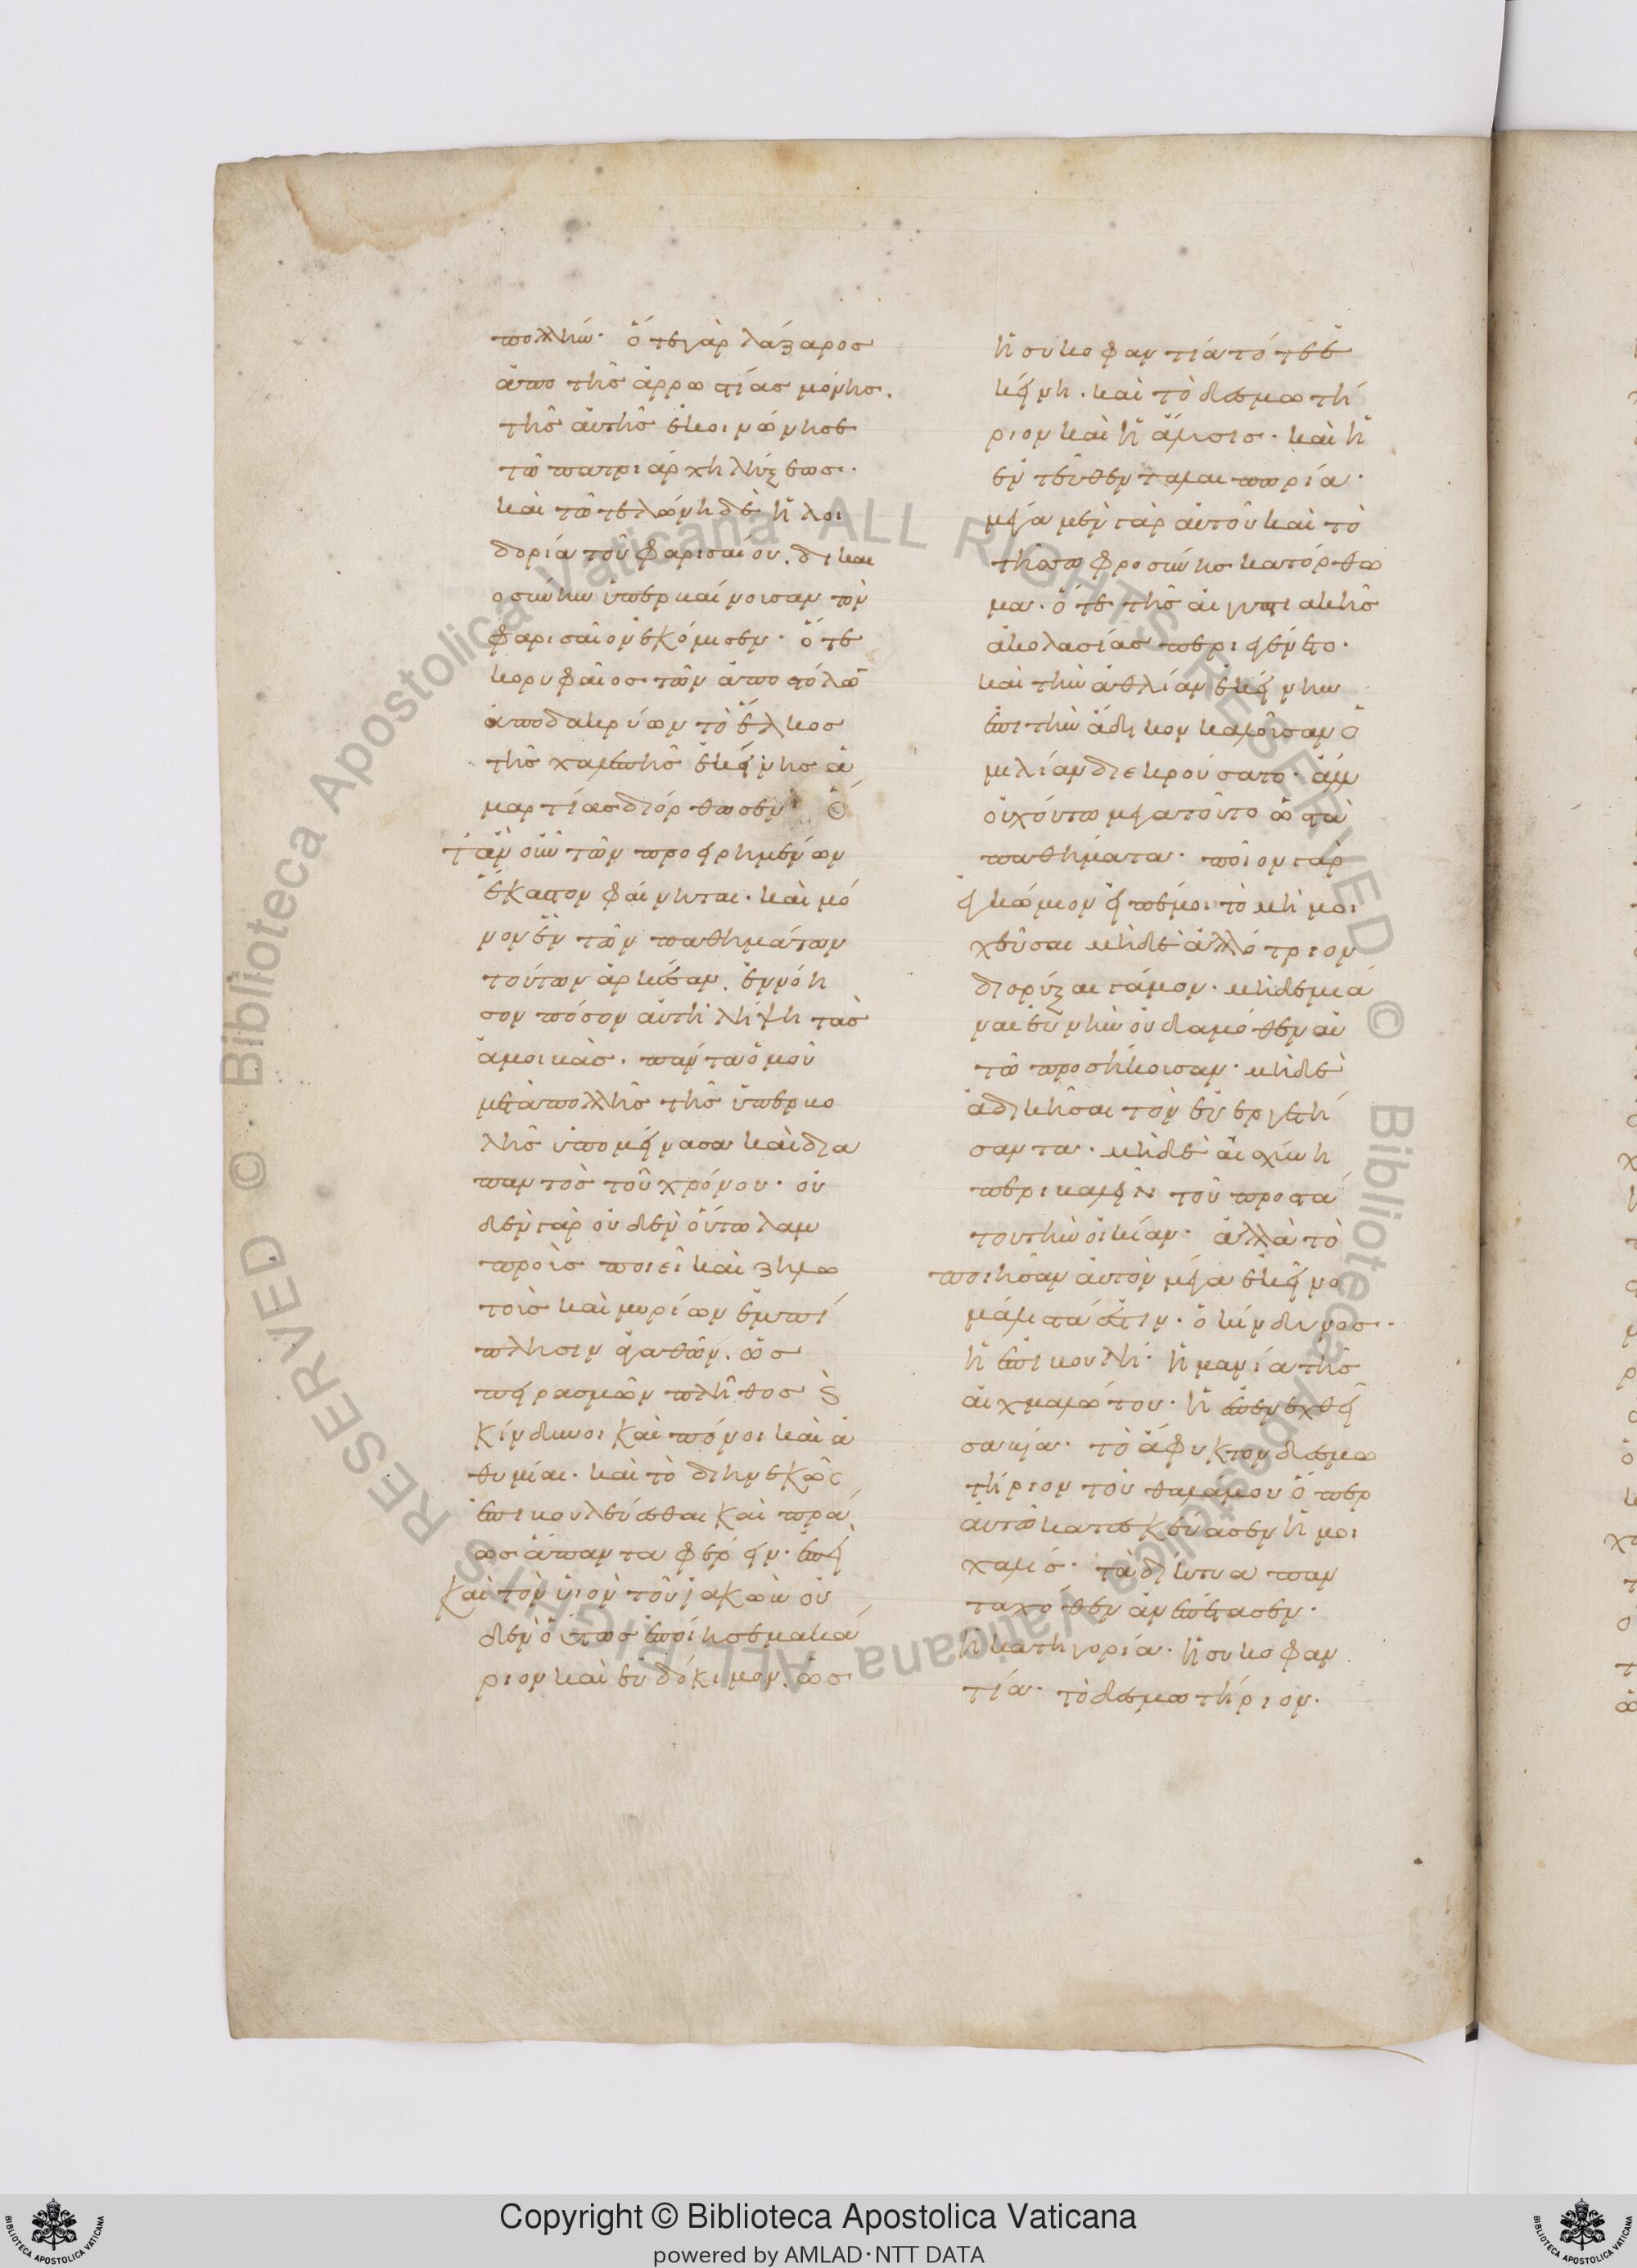 πολλήν· ὅτε γὰρ λάζαρος
ἀπὸ τῆς ἀρρωστίας μόνης.
τῆς αὐτῆς ἐκοινώνησε
τῶ πατριάρχη λήξεως·
καὶ τῶ τελώνη δὲ ἡ λοι
δορία τοῦ φαρισαίου. δικαι
οσύνην ὑπερκαίνουσαν τὸν
φαρισαῖον ἐκόμισεν· ὅτε
κορυφαῖος τῶν ἀποστόλω̅
ἀποδακρύων τὸ ἕλκος
τῆς χαλεπῆς ἐκείνης ἁ
μαρτίας διόρθωσεν·
τἂν οὖν τῶν προειρημένων
ἕκαστον φαίνηται· καὶ μό
νον ἓν τῶν παθημάτων
τούτων ἀρκέσαν. ἐννόη
σον πόσον αὐτὴ λήψη τὰς
ἀμοιβὰς. πάντα ὁμοῦ
μετὰ πολλῆς τῆς ὑπερβο
λῆς ὑπομείνασα καὶ δια
παντὸς τοῦ χρόνου· οὐ
δὲν γὰρ οὐδὲν οὕτω λαμ
προὺς ποιεῖ καὶ ζηλω
τοὺς καὶ μυρίων ἐμπί
πλησιν ἀγαθῶν. ὡς
πειρασμῶν πλῆθος ϗ
κίνδυνοι καὶ πόνοι καὶ ἀ
θυμίαι· καὶ τὸ διηνεκῶς
ἐπιβουλεύεσθαι καὶ πρά
ως ἅπαντα φέρειν· ἐπεὶ
καὶ τὸν υἱὸν τοῦ ἰακὼβ οὐ
δὲν οὕτως ἐποίησε μακά
ριον καὶ εὐδόκιμον. ὡς
ἡ συκοφαντία τότε ἐ
κείνη. καὶ τὸ δεσμωτή
ριον καὶ ἡ ἅλυσις· καὶ ἡ
ἐντεῦθεν ταλαιπωρία·
μέγα μὲν γὰρ αὐτοῦ καὶ τὸ
τῆς σωφροσύνης κατόρθω
μα· ὅτε τῆς αἰγυπτιακῆς
ἀκολασίας περιεγένετο·
καὶ τὴν ἀθλίαν ἐκείνην
ἐπὶ τὴν ἄδικον καλοῦσαν ὁ
μιλίαν διεκρούσατο· ἀλλ'
οὐχ' οὕτω μέγα τοῦτο ὡς τὰ
παθήματα· ποῖον γὰρ
ἐγκώμιον εἰπέ μοι τὸ μὴ μοι
χεῦσαι μηδὲ ἀλλότριον
διορύξαι γάμον· μηδὲ μιᾶ
ναι εὐνὴν οὐδαμόθεν αὐ
τῶ προσήκουσαν· μηδὲ
ἀδικῆσαι τὸν εὐεργετή
σαντα· μηδὲ αἰσχύνη
περιβαλεῖν τοῦ προστά
του τὴν οἰκίαν· ἀλλὰ τὸ
ποιῆσαν αὐτὸν μέγα ἐκεῖνο
μάλιστά ἐστιν· ὁ κίνδυνος·
ἡ ἐπιβουλή· ἡ μανία τῆς
αἰχμαλώτου· ἡ ἐπενεχθεῖ
σα βία· τὸ ἄφυκτον δεσμω
τήριον τοῦ θαλάμου ὅπερ
αὐτῶ κατεσκεύασεν ἡ μοι
χαλίς· τὰ δίκτυα παν
ταχόθεν ἀνεπέτασεν·
ἡ κατηγορία· ἡ συκοφαν
τία· τὸ δεσμωτήριον·
Copyright © Biblioteca Apostolica Vaticana
powered by AMLAD·NTT DATA